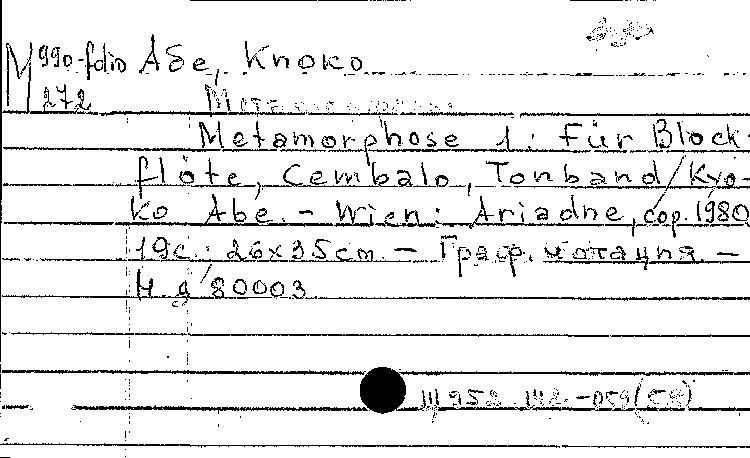 M 990-folio Абе, Киоко
272
Metamorphose 1: Für Block-
flöte, Cembalo, Tonband / Kyo-
ko Abe. - Wien: Ariadne, cop. 1980
19с.; 26x35cm. - Граф. нотация. -
Н.д. 80003
Щ952